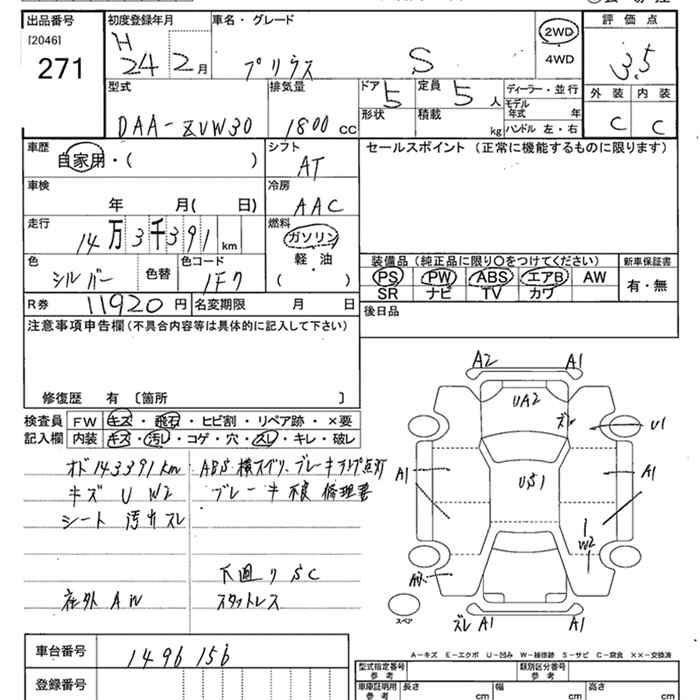 出品番号 初度登録年月 車名・グレード 評価点
[2046] H 24 2月 プリウス S 2WD 4WD 3.5
271
型式 排気量 ドア 定員 ディーラー・並行 外装 内装
DAA-ZVW30 1800cc 5 5人 モデル年式 年 C C
形状 積載 kg ハンドル 左・右
車歴 シフト セールスポイント (正常に機能するものに限ります)
自家用・( ) AT
車検 冷房
年 月( 日) AAC
走行 燃料
14万3千391km ガソリン
軽油
( )
装備品(純正品に限り○をつけてください) 新車保証書
色 色替 色コード PS PW ABS エアB AW 有・無
シルバー 1F7 SR ナビ TV カワ
R券 11920円 名変期限 月 日 後日品
注意事項申告欄(不具合内容等は具体的に記入して下さい)
修復歴 有 〔箇所 〕
検査員 FW キズ・飛石・ヒビ割・リペア跡・×要
記入欄 内装 キズ・汚レ・コゲ・穴・スレ・キレ・破レ
オド143391km ABS 横スベリ、ブレーキランプ点灯
キズ U W2 ブレーキ不良 修理要
シート 汚れスレ
下廻りSC
社外AW スタットレス
A2 A1
UA2 ズレ U1
A1 US1 A1
W2
スペア ズレ A1 A1
A-キズ E-エクボ U-凹み W-補修跡 S-サビ C-腐食 ××-交換済
車台番号 1496156
登録番号
型式指定番号 参考 類別区分番号 参考
車庫証明用 参考 長さ cm 幅 cm 高さ cm